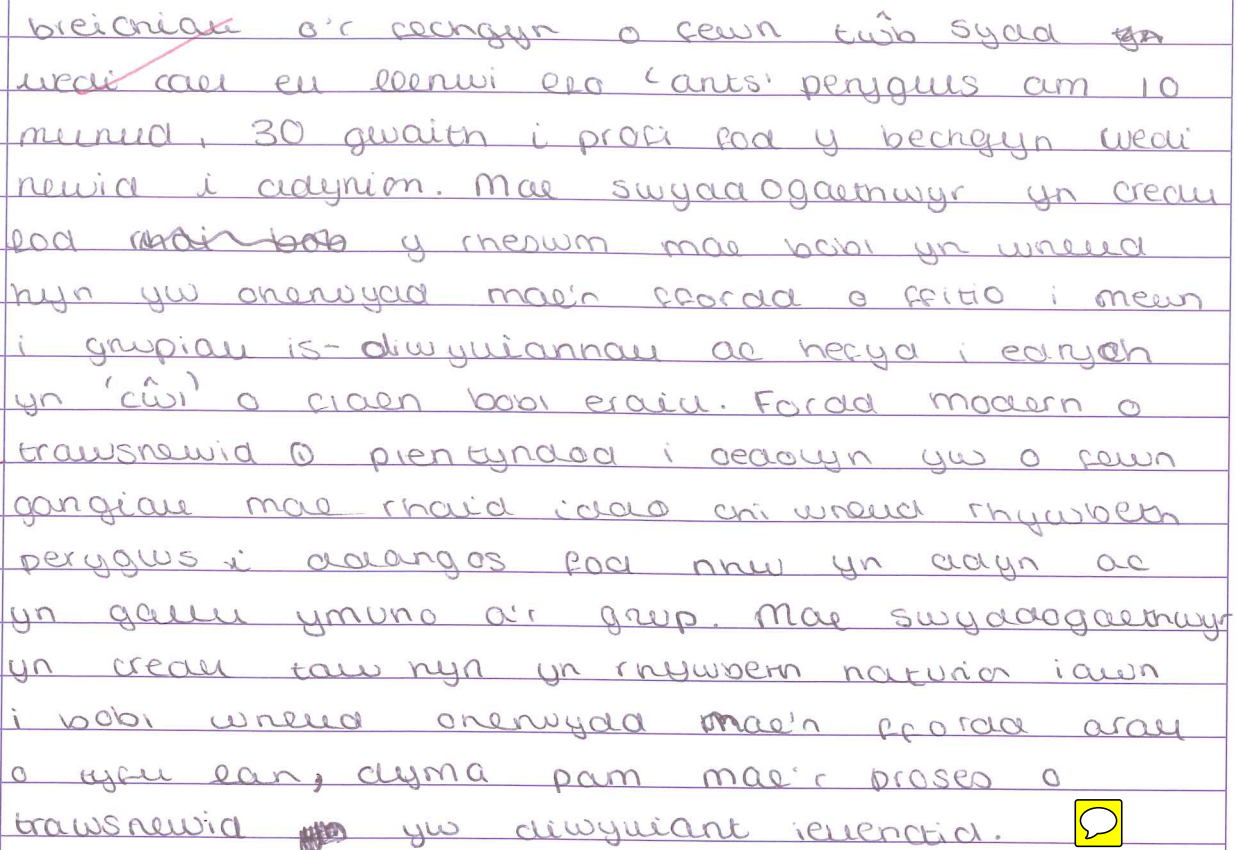 breichiau o'r bechgyn o fewn twb syŵd
wedi cael eu llenwi efo 'ants' peryglus am 10
munud, 30 gwaith i profi fod y bechgyn wedi
newid i ddynion. Mae swyddogaethwyr yn credu
fod y rheswm mae bobl yn wneud
hyn yw oherwydd mae'n ffordd o ffitio i mewn
i grwpiau is-diwylliannau ac hefyd i edrych
yn 'cŵl' o flaen bobl eraill. Fordd modern o
trawsnewid o plentyndod i oedolyn yw o fewn
gangiau mae rhaid iddo chi wneud rhywbeth
peryglus i ddangos fod nhw yn ddyn ac
yn gallu ymuno a'r grwp. Mae swyddogaethwyr
yn credu taw hyn yn rhywbeth naturiol iawn
i bobl wneud oherwydd mae'n ffordd arall
o tyfu lan, dyma pam mae'r proses o
trawsnewid yw diwylliant ieuenctid.